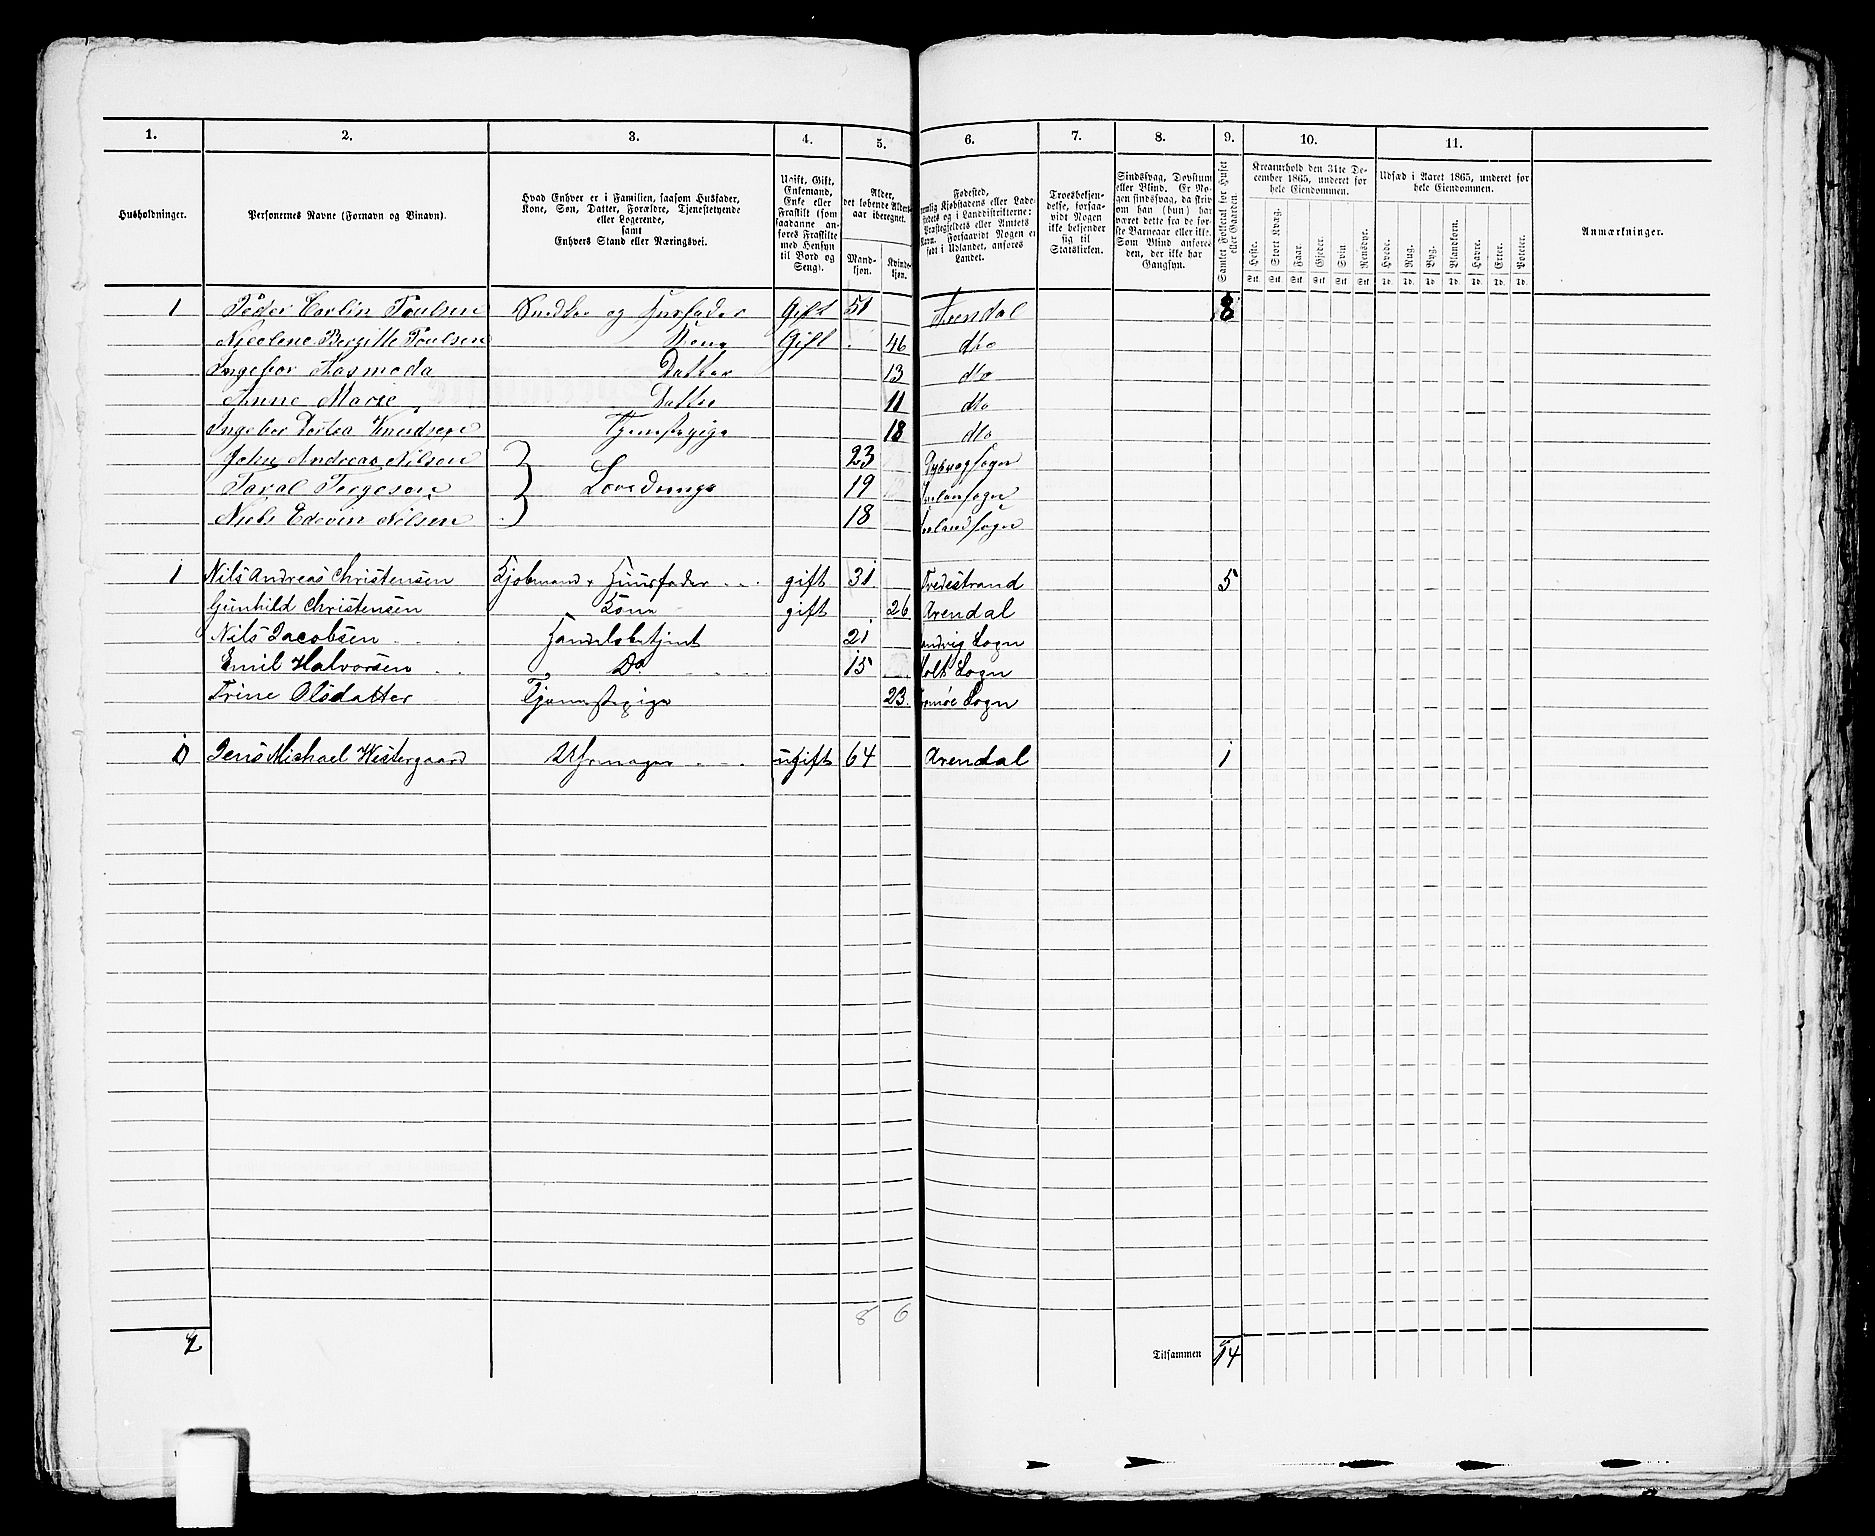 1. 2. 3. 4. 5. 6. 7. 8. 9. 10. 11.
Husholdninger.
Personernes Navne (Fornavn og Binavn).
Hvad Enhver er i Familien, saasom Husfader,
Kone, Søn, Datter, Forældre, Tjenestetyende
eller Logerende,
samt
Enhvers Stand eller Næringsvei.
Ugift, Gift,
Enkemand,
Enke eller
Fraskilt (som
saadanne an-
føres Fraskilte
med Hensyn
til Bord og
Seng).
Alder,
det løbende Alders-
aar iberegnet.
Mand-
kjøn.
Kvinde-
kjøn.
Fødested,
nemlig Kjøbstadens eller Lade-
stedets og i Landdistrikterne:
Præstegjeldets eller Amtets
Navn. Forsaavidt Nogen er
født i Udlandet, anføres
Landet.
Troesbekjen-
delse, forsaa-
vidt Nogen
ikke bekjender
sig til
Statskirken.
Sindssvag, Døvstum
eller Blind. Er No-
gen sindssvag, da skri-
om han (hun) har
været dette fra de før-
ste Barneaar eller ikke.
Som Blind anføres
den, der ikke har
Gangsyn.
Samlet Folketal for Huset
eller Gaarden
Kreaturhold den 31te De-
cember 1865, underet for
hele Eiendommen.
Heste. Stort Kvæg. Faar. Gjeder. Svin Rensdyr.
Stk. Stk. Stk. Stk. Stk. Stk.
Udsæd i Aaret 1865, underet for
hele Eiendommen.
Hvede. Rug. Byg. Blandkorn. Havre. Erter. Poteter.
Td. Td. Td. Td. Td. Td. Td.
Anmærkninger.
1 Peder Carlin Poulsen Snedker og Husfader Gift 51 Arendal 8
Nicolene Bergitte Poulsen Kone Gift 46 dto
Ingebor Asmoda Datter 13 dto
Anne Marie Datter 11 dto
Ingebor Knudsen Tjenestepige 18 dto
John Andreas Nilsen 23 Dybvag sogn
Taral Tergesen Læredrenge 19 sogn
Niels Edevin Nilsen 18 sogn
1 Nils Andreas Christensen Kjøbmand Huusfader gift 31 Tvedestrand 5
Gunhild Christensen Kone gift 26 Arendal
Nils Jacobsen Handelsbetjent 21 Sogn
Emil Halvorsen Do 15 Holt Sogn
Trine Olsdatter Tjenestepige 23 Tromøe Sogn
1 Jens Michael Westergaard Uhrmager ugift 64 Arendal 1
8 6
2 Tilsammen 14